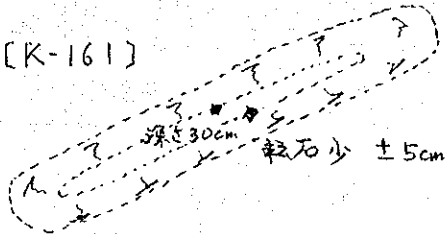 [K-161]
深さ30cm
転石少 ±5cm